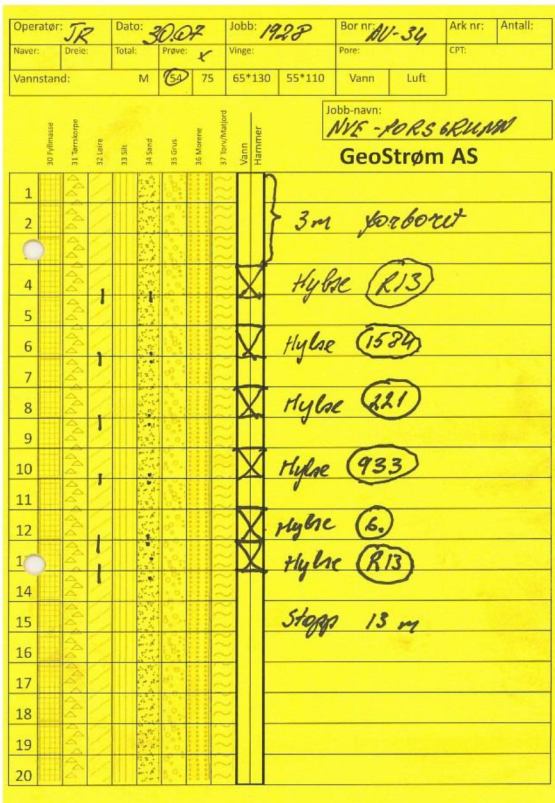 Operatør: JR Dato: 30.07 Jobb: 1928 Bor nr: AU-34 Ark nr: Antall:
Naver: Dreie: Total: Prøve: x Vinge: Pore: CPT:
Vannstand: M 54 75 65*130 55*110 Vann Luft
Jobb-navn:
NVE - PORSGRUNN
GeoStrøm AS
30 Fyllmasse 31 Tørrskorpe 32 Leire 33 Silt 34 Sand 35 Grus 36 Morene 37 Torv/Matjord Vann Hammer
1
2 3 m forboret
4 Hylse R13
5
6 Hylse 1584
7
8 Hylse 221
9
10 Hylse 933
11
12 Hylse 6.
1 Hylse R13
14
15 Stopp 13 m
16
17
18
19
20